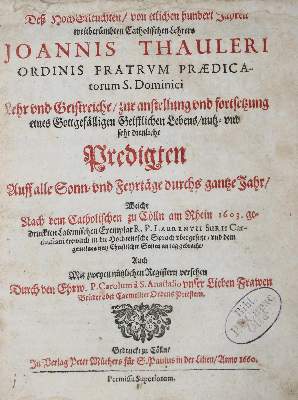 Deß HochErleuchten / von etlichen hundert Jahren
weitberümbten Catholischen Lehrers
JOANNIS THAULERI
ORDINIS FRATRVM PRÆDICA-
torum S. Dominici
Lehr vnd Geistreiche / zur anstellung vnd fortsetzung
eines Gottgefälligen Geistlichen Lebens / nutz- vnd
sehr dienliche
Predigten
Auff alle Sonn- vnd Feyrtäge durchs gantze Jahr /
Welche
Nach dem Catholischen zu Cölln am Rhein 1603. ge-
druckten Lateinischen Exemplar R. P. LAURENTII SURII Car-
thusiani in die Hochteutsche Sprach vbergesetzt / vnd dem
gemeinen Christliche zu an tag gebracht /
Auch
Mit zweyen nützlichen Registern versehen
Durch den Ehrw. P. Carolum à S. Anastasio vnser Lieben Frawen
Brüder oder Carmeliter Ordens Priestern.
Bibl.
Gedruckt zu Cölln /
In Verlag Peter Müchers für S. Paulus in der Lilien / Anno 1660.
Permissu Superiorum.